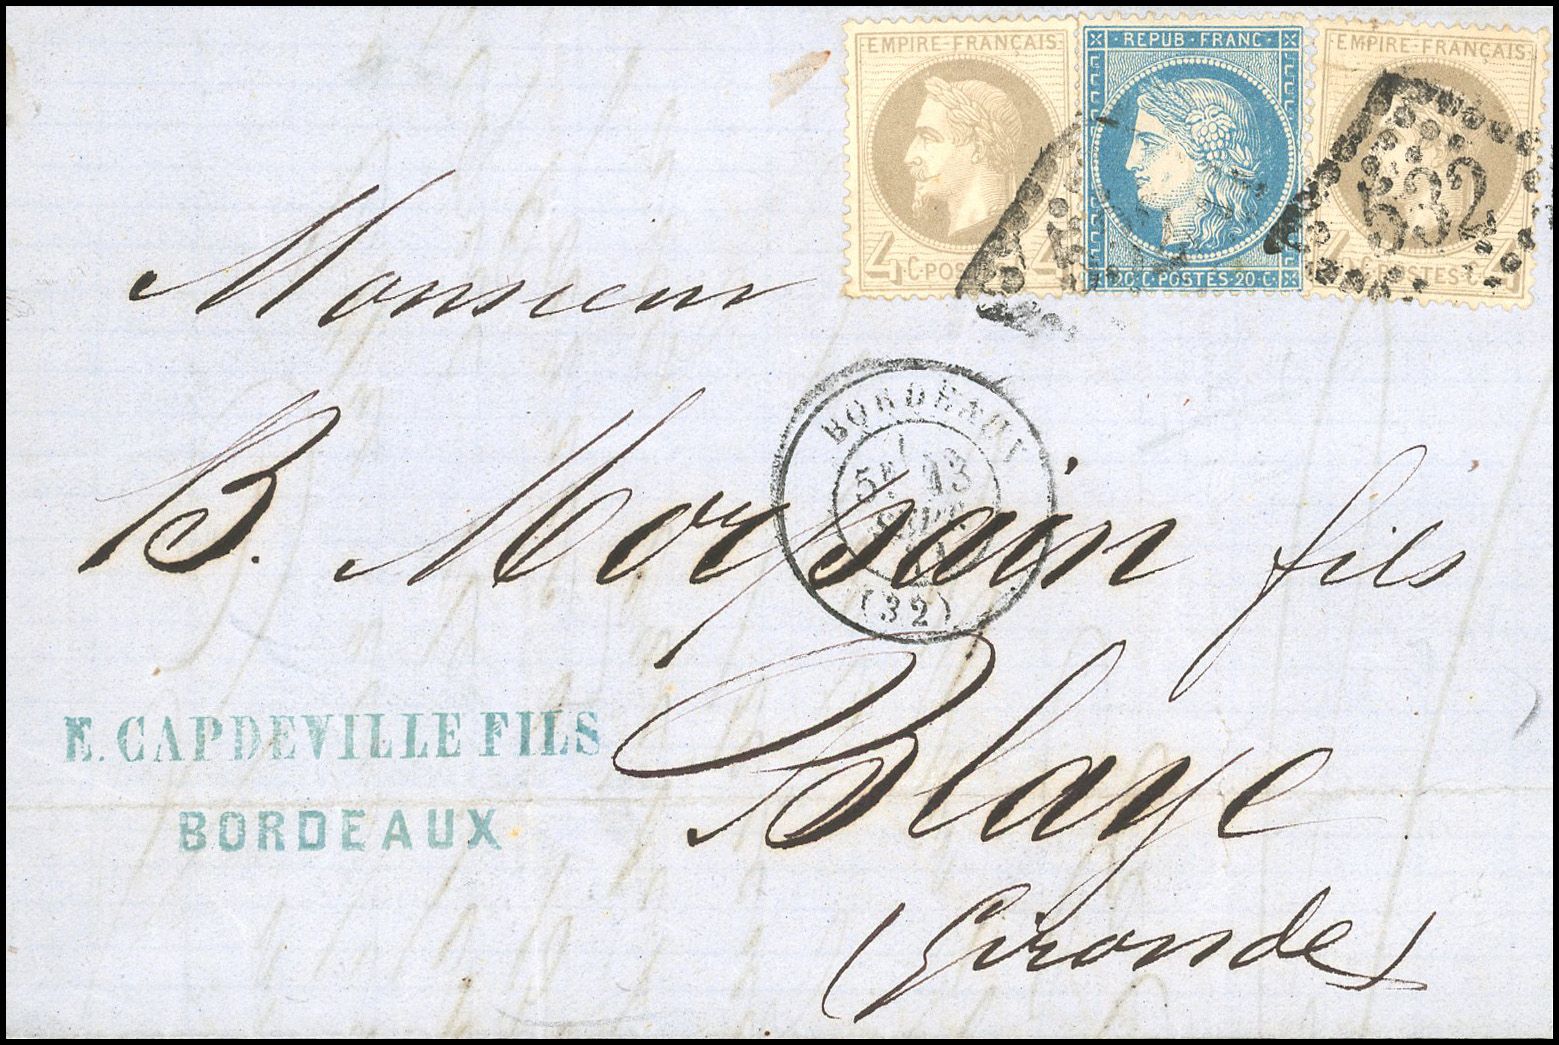 EMPIRE FRANÇAIS
4 C·POSTES·C 4
REPUB·FRANC·
20·C·POSTES·20·C·
EMPIRE FRANÇAIS
4 C·POSTES·C 4
532
Monsieur
BORDEAUX
5E 13
SEPT
(32)
B. Moysain fils
E. CAPDEVILLE FILS
BORDEAUX
Blaye
(Gironde)